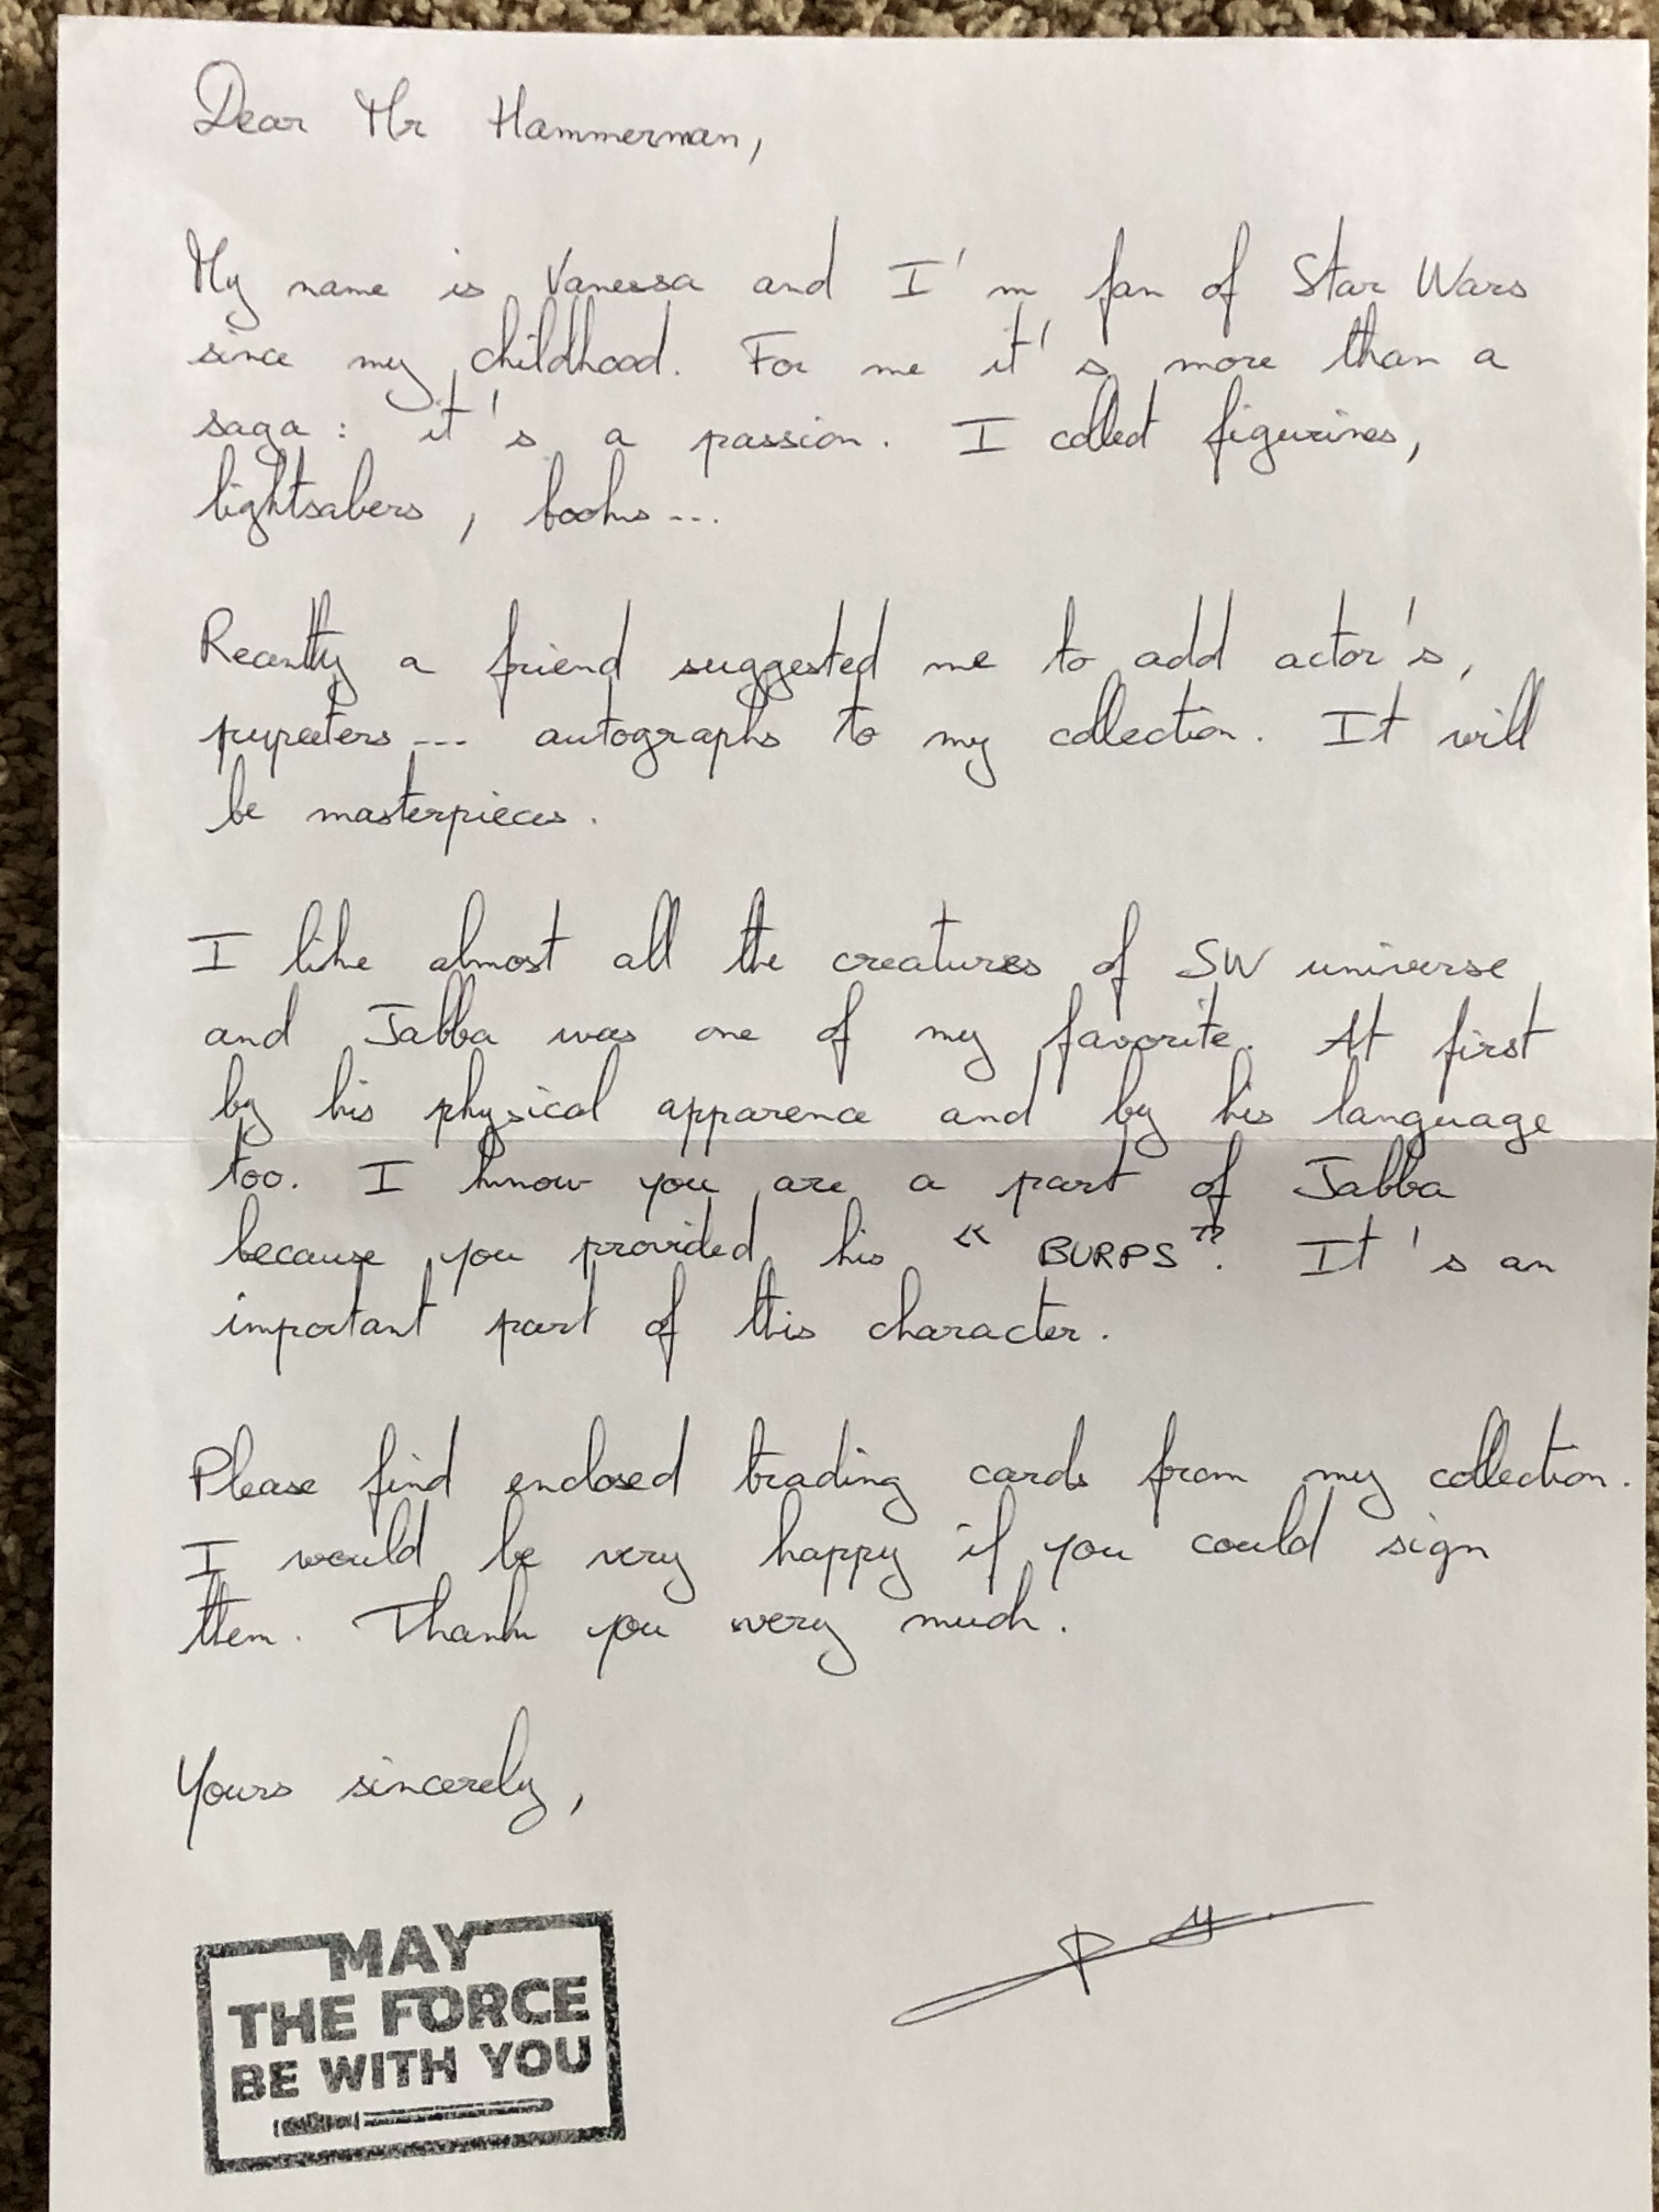 Dear Mr Hammerman,
My name is Vanessa and I'm fan of Star Wars
since my childhood. For me it's more than a
saga : it's a passion. I collect figurines,
lightsabers, books...
Recently a friend suggested me to add actor's,
pupeeters... autographs to my collection. It will
be masterpieces.
I like almost all the creatures of SW universe
and Jabba was one of my favorite. At first
by his physical apparence and by his language
too. I know you are a part of Jabba
because you provided his "BURPS". It's an
important part of this character.
Please find enclosed trading cards from my collection.
I would be very happy if you could sign
them. Thank you very much.
Yours sincerely,
MAY
THE FORCE
BE WITH YOU